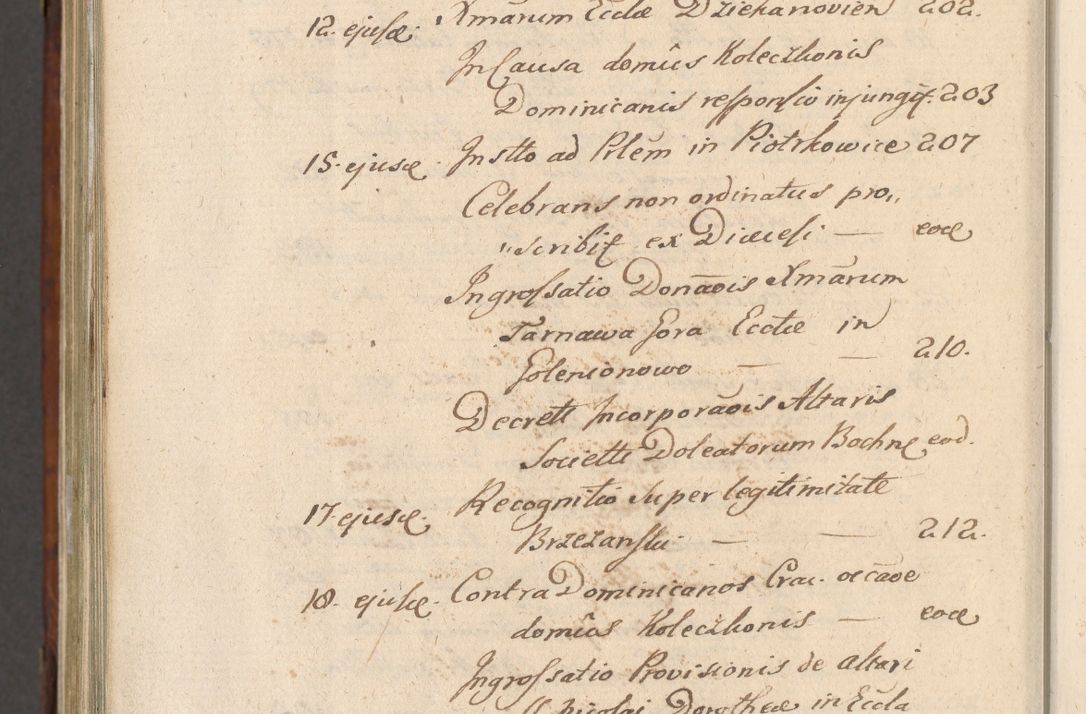 12. ejusd. Xmarum Ecclae Dziekanovien 202.
In Causa domûs Koleczkonis
Dominicanis responsio injungit. 203
15. ejusd. Instto ad Prlem in Piotrkowice 207
Celebrans non ordinatus pro„
„scribit ex Diaecesi — eod
Ingrossatio Donaõis Xmārum
Tarnawa Gora Ecclae in
Golenionowo — — 210.
Decrett Incorporaõis Altaris
Societt Doleatorum Bochne eod.
17 ejusd. Recognitio super legitimitate
Brzezanski — — 212.
18. ejusd. Contra Dominicanos Crac. occãoe
domûs Koleczkonis — eod
Ingrossatio Provisionis de altari
S Nicolai Dorotheae in Eccla